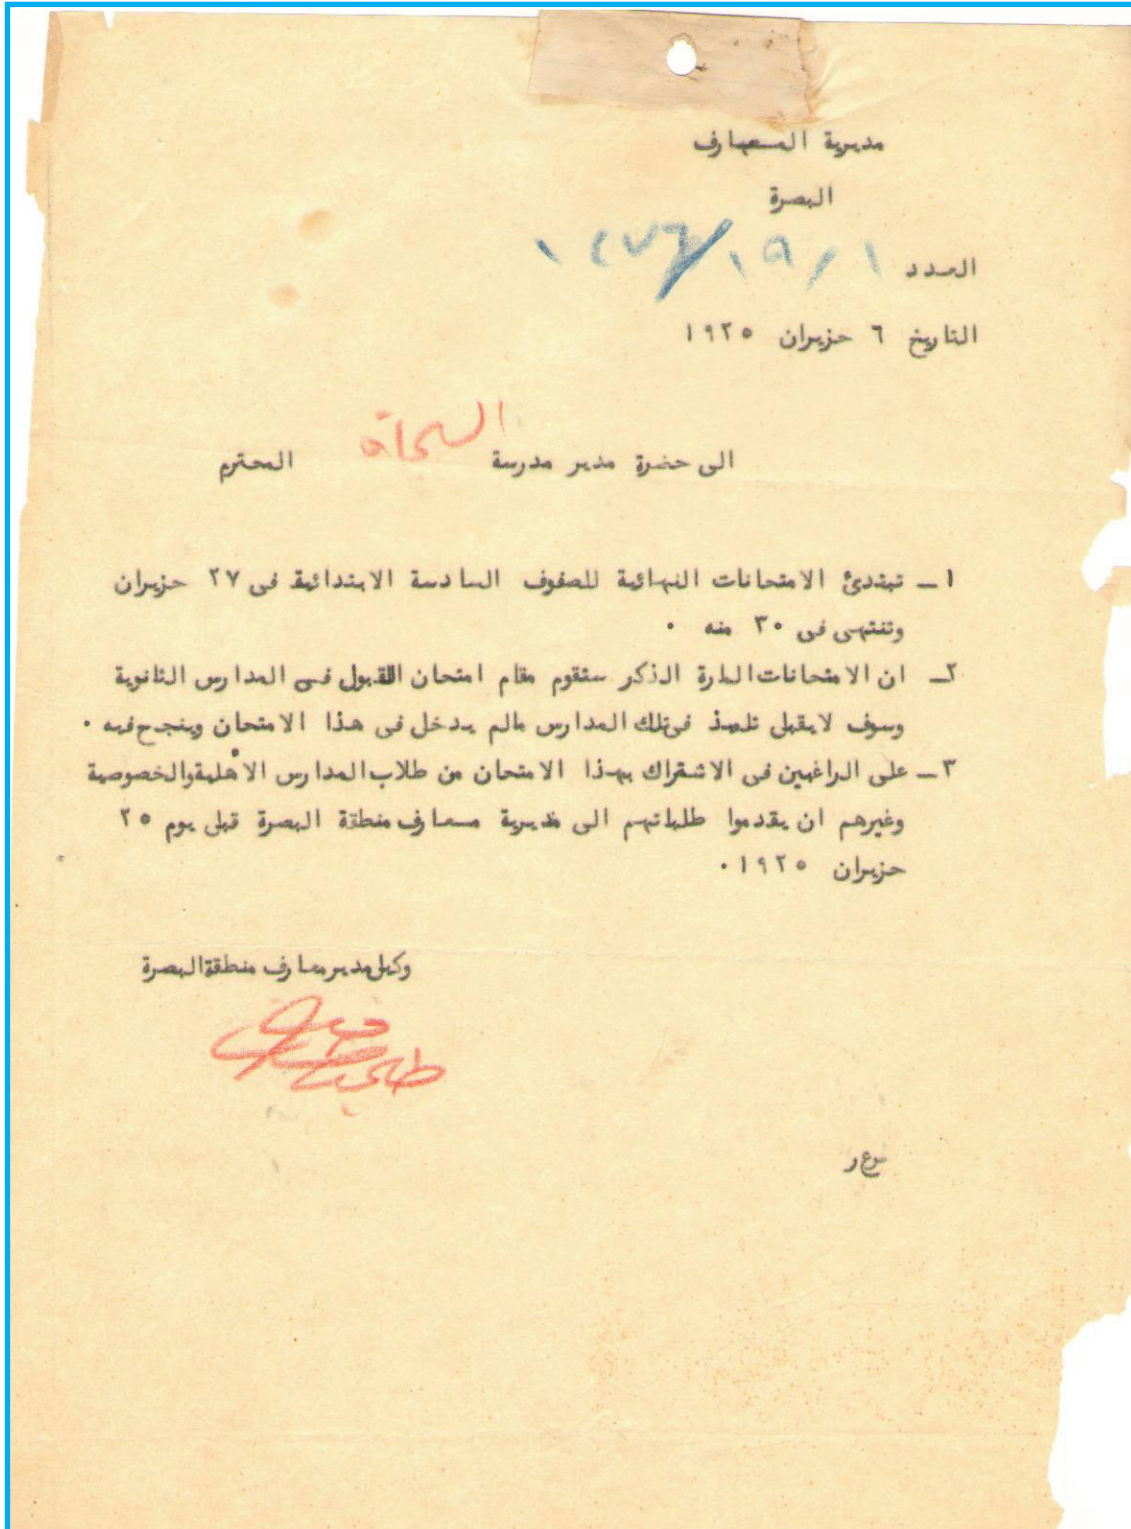 مديرية المعارف
البصرة
العدد ١/١٩/
التاريخ ٦ حزيران ١٩٢٥
الى حضرة مدير مدرسة المحترم
١ـ تبتدئ الامتحانات النهائية للصفوف السادسة الابتدائية فى ٢٧ حزيران
وتنتهى فى ٣٠ منه ٠
٢ـ ان الامتحانات المارة الذكر ستقوم مقام امتحان القبول فى المدارس الثانوية
وسوف لايقبل تلميذ فى تلك المدارس مالم يدخل فى هذا الامتحان وينجح فيه ٠
٣ـ على الراغبين فى الاشتراك بهذا الامتحان من طلاب المدارس الاهلية والخصوصية
وغيرهم ان يقدموا طلباتهم الى مديرية معارف منطقة البصرة قبل يوم ٢٥
حزيران ١٩٢٥٠
وكيل مدير معارف منطقة البصرة